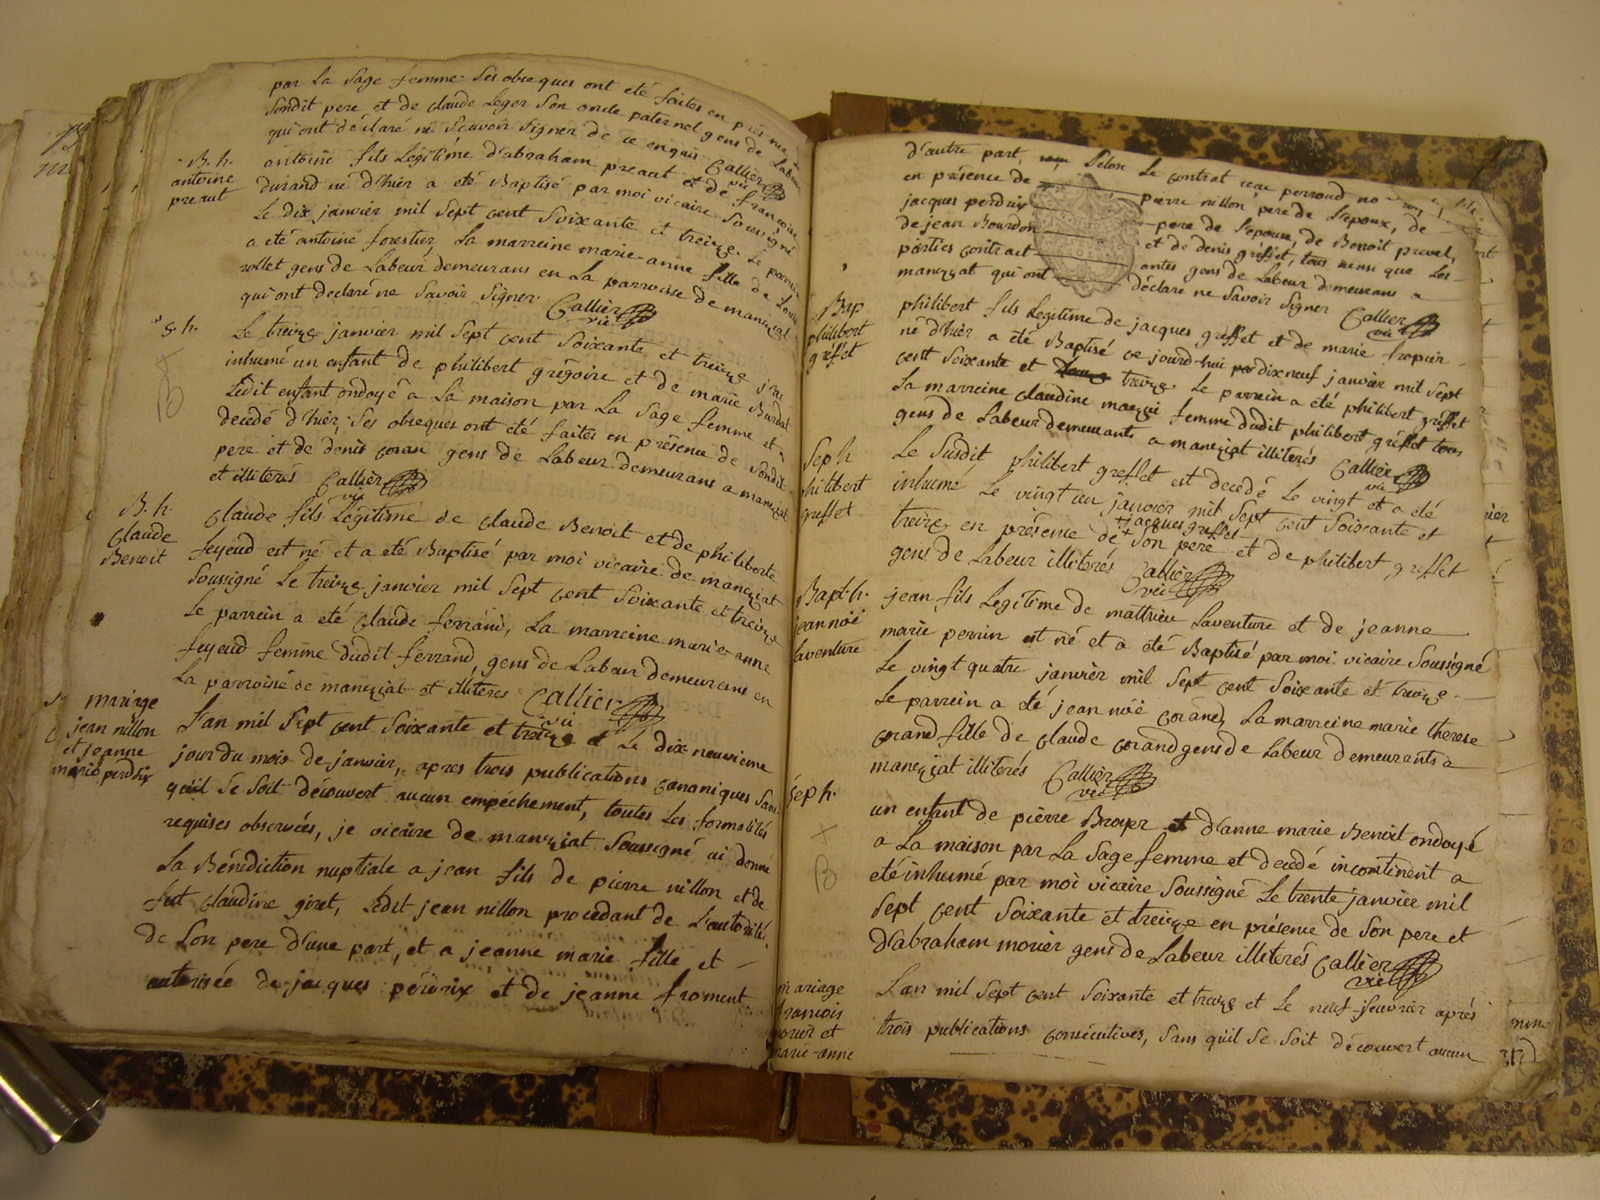 par la sage femme. Ses obseques ont eté faites en presence
Sondit pere et de claude Leger Son oncle paternel gens de Labeur
qui ont déclaré ne Scavoir Signer de ce enquis Callier vic
B. h.
antoine
preaut
antoine fils Légitime d'abraham preaut et de françoise
durand né d'hier a eté Baptisé par moi vicaire Soussigné
Le dix janvier mil Sept cent Soixante et treize. Le parrein
a eté antoine forestier, La marreine marie-anne fille de Louis
rollet gens de Labeur demeurans en La parroisse de manziat
qui ont declaré ne Savoir Signer. Callier vic
S. h.
Le treize janvier mil Sept cent Soixante et treize j'ai
inhumé un enfant de philibert grégoire et de marie Burdat
Ledit enfant ondoyé a La maison par La Sage femme et
decedé d'hier; Ses obseques ont eté faites en présence de Sondit
pere et de denis coran gens de Labeur demeurans a manziat
et illiterés Callier vic
B. h.
Claude
Benoit
Claude fils Légitime de Claude Benoit et de philiberte
feyeud est né et a eté Baptisé par moi vicaire de manziat
Soussigné Le treize janvier mil Sept cent Soixante et treize
Le parrein a eté Claude ferrand, La marreine marie-anne
feyeud femme dudit ferrand, gens de Labeur demeurans en
La parroisse de manziat et illiteres Callier vic
mariage
jean nillon
et jeanne
marie perdrix
L'an mil Sept cent Soixante et treize et Le dix neuvieme
jour du mois de janvier, apres trois publications canoniques Sans
qu'il Se Soit découvert aucun empéchement, toutes Les formalités
requises observées, je vicaire de manziat Soussigné ai donné
La Bénédiction nuptiale a jean fils de pierre nillon et de
fut Claudine giret, Ledit jean nillon procedant de L'autorité
de Son pere d'une part, et a jeanne marie fille et
autorisée de jacques perdrix et de jeanne froment
d'autre part, Selon Le contrat reçu perroud
en présence de pierre nillon pere de L'epoux, de
jacques perdrix pere de L'epouse, de Benoit prevel,
de jean Bourdon et de denis griffet, tous ainsi que Les
parties contractantes gens de Labeur demeurans a
manziat qui ont déclare ne Savoir Signer Callier vic
Bap
philibert
gréffet
philibert fils Légitime de jacques greffet et de marie
né d'hier a été Baptisé ce jourd'hui dix neuf janvier mil Sept
cent Soixante et treize. Le parrein a été philibert gréffet
La marreine Claudine manziat femme dudit philibert gréffet tous
gens de Labeur demeurants a manziat illiterés Callier vic
Sep h
philibert
greffet
Le Susdit philibert greffet est decedé Le vingt et a eté
inhumé Le vingt un janvier mil Sept cent Soixante et
treize en présence de jacques greffet Son pere et de philibert greffet
gens de Labeur illiterés Callier vic
Bapt. h.
jean noë
Laventure
jean fils Légitime de mathieu Laventure et de jeanne
marie perrin est né et a eté Baptisé par moi vicaire Soussigné
Le vingt quatre janvier mil Sept cent Soixante et treize.
Le parrein a été jean noë corand, La marreine marie therese
corand fille de Claude corand gens de Labeur demeurants a
manziat illiterés Callier vic
Sep h.
un enfant de pierre Broyer et d'anne marie Benoit ondoyé
a La maison par La Sage femme et decedé incontinent a
eté inhumé par moi vicaire Soussigné Le trente janvier mil
Sept cent Soixante et treize en présence de Son pere et
d'abraham morier gens de Labeur illiterés Callier vic
mariage
francois
morier et
marie-anne
L'an mil Sept cent Soixante et treize et Le neuf feuvrier après
trois publications consécutives, Sans qu'il Se Soit découvert aucun